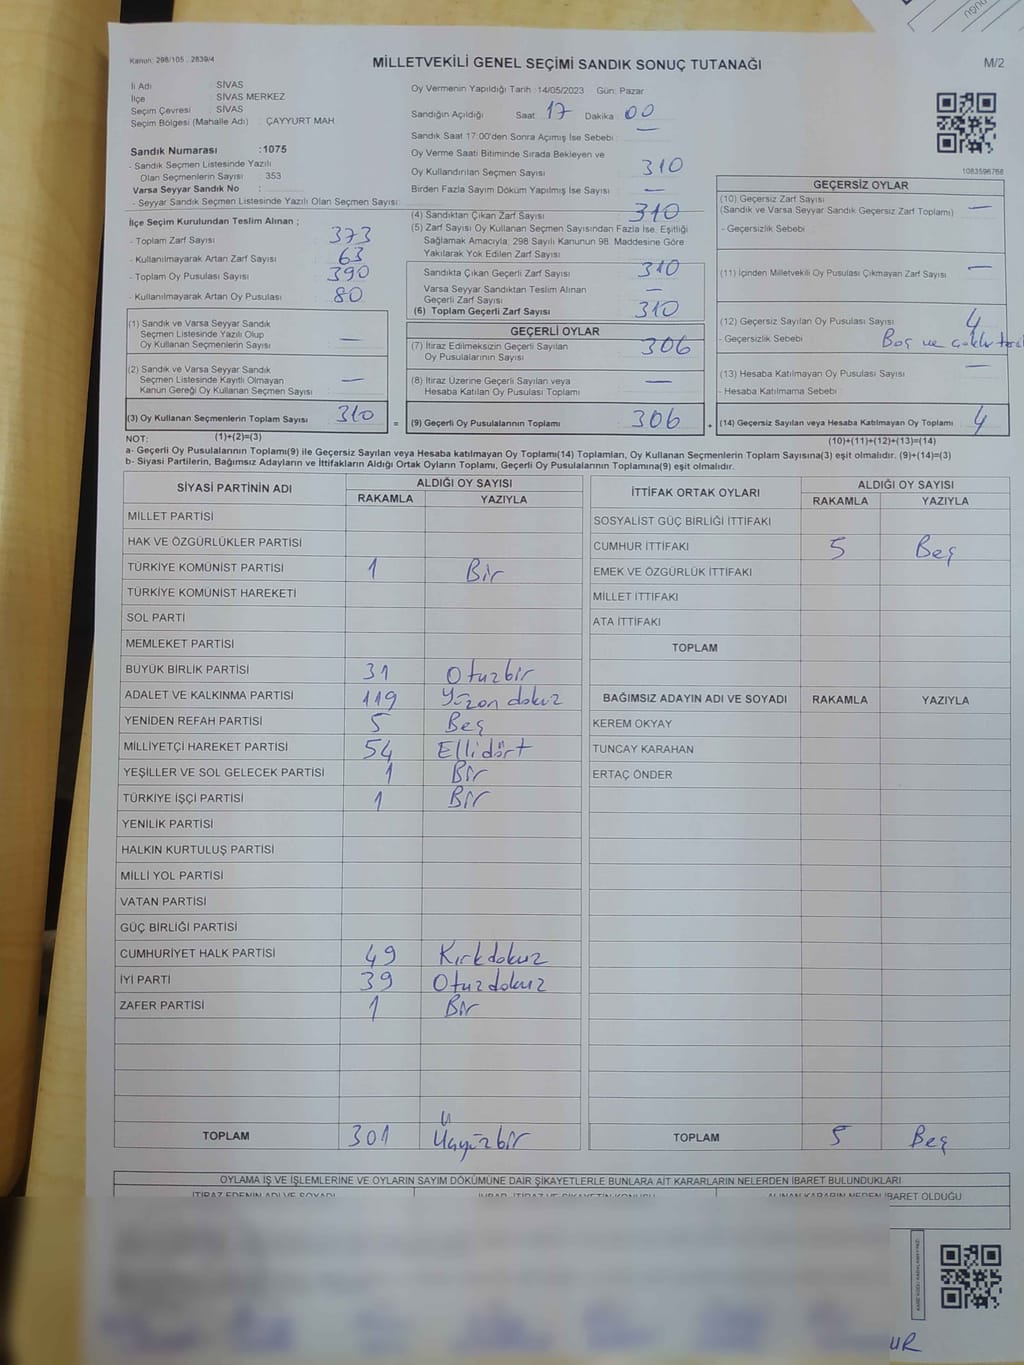 Kanun: 298/105 , 2839/4
MİLLETVEKİLİ GENEL SEÇİMİ SANDIK SONUÇ TUTANAĞI
M/2
İl Adı : SİVAS
İlçe : SİVAS MERKEZ
Seçim Çevresi : SİVAS
Seçim Bölgesi (Mahalle Adı) : ÇAYYURT MAH
Sandık Numarası :1075
- Sandık Seçmen Listesinde Yazılı
Olan Seçmenlerin Sayısı : 353
Varsa Seyyar Sandık No :
- Seyyar Sandık Seçmen Listesinde Yazılı Olan Seçmen Sayısı:
Oy Vermenin Yapıldığı Tarih :14/05/2023 Gün: Pazar
Sandığın Açıldığı Saat 17 Dakika 00
Sandık Saat 17:00'den Sonra Açımış İse Sebebi : —
Oy Verme Saati Bitiminde Sırada Bekleyen ve
Oy Kullandırılan Seçmen Sayısı : 310
Birden Fazla Sayım Döküm Yapılmış İse Sayısı : —
1083596768
İlçe Seçim Kurulundan Teslim Alınan ;
- Toplam Zarf Sayısı : 373
- Kullanılmayarak Artan Zarf Sayısı : 63
- Toplam Oy Pusulası Sayısı : 390
- Kullanılmayarak Artan Oy Pusulası : 80
(1) Sandık ve Varsa Seyyar Sandık
Seçmen Listesinde Yazılı Olup
Oy Kullanan Seçmenlerin Sayısı : —
(2) Sandık ve Varsa Seyyar Sandık
Seçmen Listesinde Kayıtlı Olmayan
Kanun Gereği Oy Kullanan Seçmen Sayısı : —
(3) Oy Kullanan Seçmenlerin Toplam Sayısı : 310
(4) Sandıktan Çıkan Zarf Sayısı : 310
(5) Zarf Sayısı Oy Kullanan Seçmen Sayısından Fazla İse, Eşitliği
Sağlamak Amacıyla, 298 Sayılı Kanunun 98. Maddesine Göre
Yakılarak Yok Edilen Zarf Sayısı :
Sandıkta Çıkan Geçerli Zarf Sayısı : 310
Varsa Seyyar Sandıktan Teslim Alınan
Geçerli Zarf Sayısı : —
(6) Toplam Geçerli Zarf Sayısı : 310
GEÇERLİ OYLAR
(7) İtiraz Edilmeksizin Geçerli Sayılan
Oy Pusulalarının Sayısı : 306
(8) İtiraz Üzerine Geçerli Sayılan veya
Hesaba Katılan Oy Pusulası Toplamı : —
= (9) Geçerli Oy Pusulalarının Toplamı : 306
GEÇERSİZ OYLAR
(10) Geçersiz Zarf Sayısı
(Sandık ve Varsa Seyyar Sandık Geçersiz Zarf Toplamı) : —
- Geçersizlik Sebebi :
(11) İçinden Milletvekili Oy Pusulası Çıkmayan Zarf Sayısı : —
(12) Geçersiz Sayılan Oy Pusulası Sayısı : 4
- Geçersizlik Sebebi : Boş ve çoklu
(13) Hesaba Katılmayan Oy Pusulası Sayısı : —
- Hesaba Katılmama Sebebi :
+ (14) Geçersiz Sayılan veya Hesaba Katılmayan Oy Toplamı : 4
NOT: (1)+(2)=(3)
(10)+(11)+(12)+(13)=(14)
a- Geçerli Oy Pusulalarının Toplamı(9) ile Geçersiz Sayılan veya Hesaba katılmayan Oy Toplamı(14) Toplamları, Oy Kullanan Seçmenlerin Toplam Sayısına(3) eşit olmalıdır. (9)+(14)=(3)
b- Siyasi Partilerin, Bağımsız Adayların ve İttifakların Aldığı Ortak Oyların Toplamı, Geçerli Oy Pusulalarının Toplamına(9) eşit olmalıdır.
SİYASİ PARTİNİN ADI ALDIĞI OY SAYISI
RAKAMLA YAZIYLA
MİLLET PARTİSİ
HAK VE ÖZGÜRLÜKLER PARTİSİ
TÜRKİYE KOMÜNİST PARTİSİ 1 Bir
TÜRKİYE KOMÜNİST HAREKETİ
SOL PARTİ
MEMLEKET PARTİSİ
BÜYÜK BİRLİK PARTİSİ 31 Otuzbir
ADALET VE KALKINMA PARTİSİ 119 Yüzon dokuz
YENİDEN REFAH PARTİSİ 5 Beş
MİLLİYETÇİ HAREKET PARTİSİ 54 Ellidört
YEŞİLLER VE SOL GELECEK PARTİSİ 1 Bir
TÜRKİYE İŞÇİ PARTİSİ 1 Bir
YENİLİK PARTİSİ
HALKIN KURTULUŞ PARTİSİ
MİLLİ YOL PARTİSİ
VATAN PARTİSİ
GÜÇ BİRLİĞİ PARTİSİ
CUMHURİYET HALK PARTİSİ 49 Kırkdokuz
İYİ PARTİ 39 Otuzdokuz
ZAFER PARTİSİ 1 Bir
TOPLAM 301 Üçyüzbir
İTTİFAK ORTAK OYLARI ALDIĞI OY SAYISI
RAKAMLA YAZIYLA
SOSYALİST GÜÇ BİRLİĞİ İTTİFAKI
CUMHUR İTTİFAKI 5 Beş
EMEK VE ÖZGÜRLÜK İTTİFAKI
MİLLET İTTİFAKI
ATA İTTİFAKI
TOPLAM
BAĞIMSIZ ADAYIN ADI VE SOYADI RAKAMLA YAZIYLA
KEREM OKYAY
TUNCAY KARAHAN
ERTAÇ ÖNDER
TOPLAM 5 Beş
OYLAMA İŞ VE İŞLEMLERİNE VE OYLARIN SAYIM DÖKÜMÜNE DAİR ŞİKAYETLERLE BUNLARA AİT KARARLARIN NELERDEN İBARET BULUNDUKLARI
İTİRAZ EDENİN ADI VE SOYADI ALINAN KARARIN NEDEN İBARET OLDUĞU